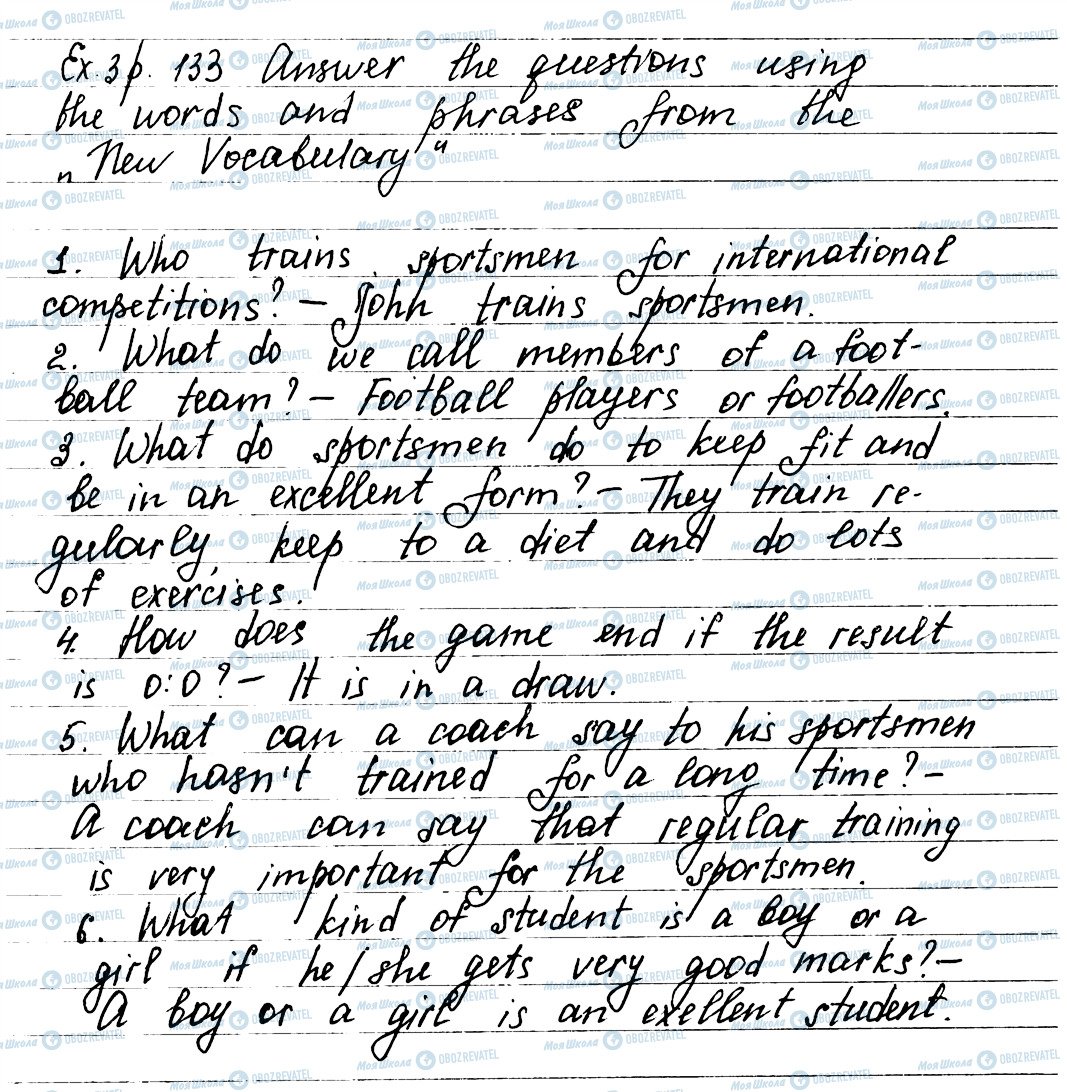 Ex. 3 p. 133 Answer the questions using
the words and phrases from the
„New Vocabulary"
1. Who trains sportsmen for international
competitions? – John trains sportsmen.
2. What do we call members of a foot-
ball team? – Football players or footballers.
3. What do sportsmen do to keep fit and
be in an excellent form? – They train re-
gularly, keep to a diet and do lots
of exercises.
4. How does the game end if the result
is 0:0? – It is in a draw.
5. What can a coach say to his sportsmen
who hasn't trained for a long time? –
A coach can say that regular training
is very important for the sportsmen.
6. What kind of student is a boy or a
girl if he/she gets very good marks? –
A boy or a girl is an exellent student.